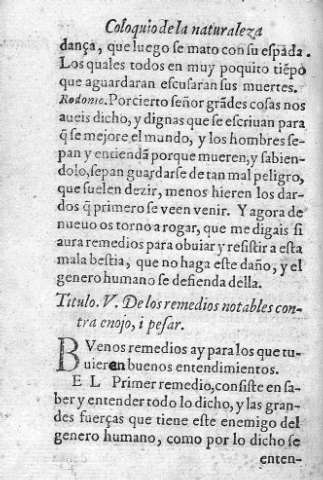 Coloquio de la naturaleza
dança, que luego se mato con su espada.
Los quales todos en muy poquito tiẽpo
que aguardaran escusaran sus muertes.
Rodonio. Por cierto señor grãdes cosas nos
aueis dicho, y dignas que se escriuan para
q̃ se mejore el mundo, y los hombres se-
pan y entiendã porque mueren, y sabien-
dolo, sepan guardarse de tan mal peligro,
que suelen dezir, menos hieren los dar-
dos q̃ primero se veen venir. Y agora de
nueuo os torno a rogar, que me digais si
aura remedios para obuiar y resistir a esta
mala bestia, que no haga este daño, y el
genero humano se defienda della.
Titulo. V. De los remedios notables con-
tra enojo, i pesar.
BVenos remedios ay para los que tu-
uieren buenos entendimientos.
EL Primer remedio, consiste en sa-
ber y entender todo lo dicho, y las gran-
des fuerças que tiene este enemigo del
genero humano, como por lo dicho se
enten-